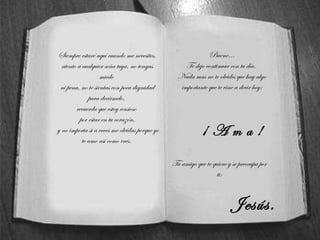 Siempre estaré aquí cuando me necesites,
atento a cualquier seña tuya, no tengas
miedo
ni pena, no te sientas con poca dignidad
para decírmelo,
recuerda que estoy ansioso
por estar en tu corazón,
y no importa si a veces me olvidas porque yo
te amo así como eres.
Bueno...
Te dejo continuar con tu día,
Nada mas no te olvides que hay algo
importante que te vine a decir hoy:
¡ A m a !
Tu amigo que te quiere y se preocupa por
ti:
Jesús.